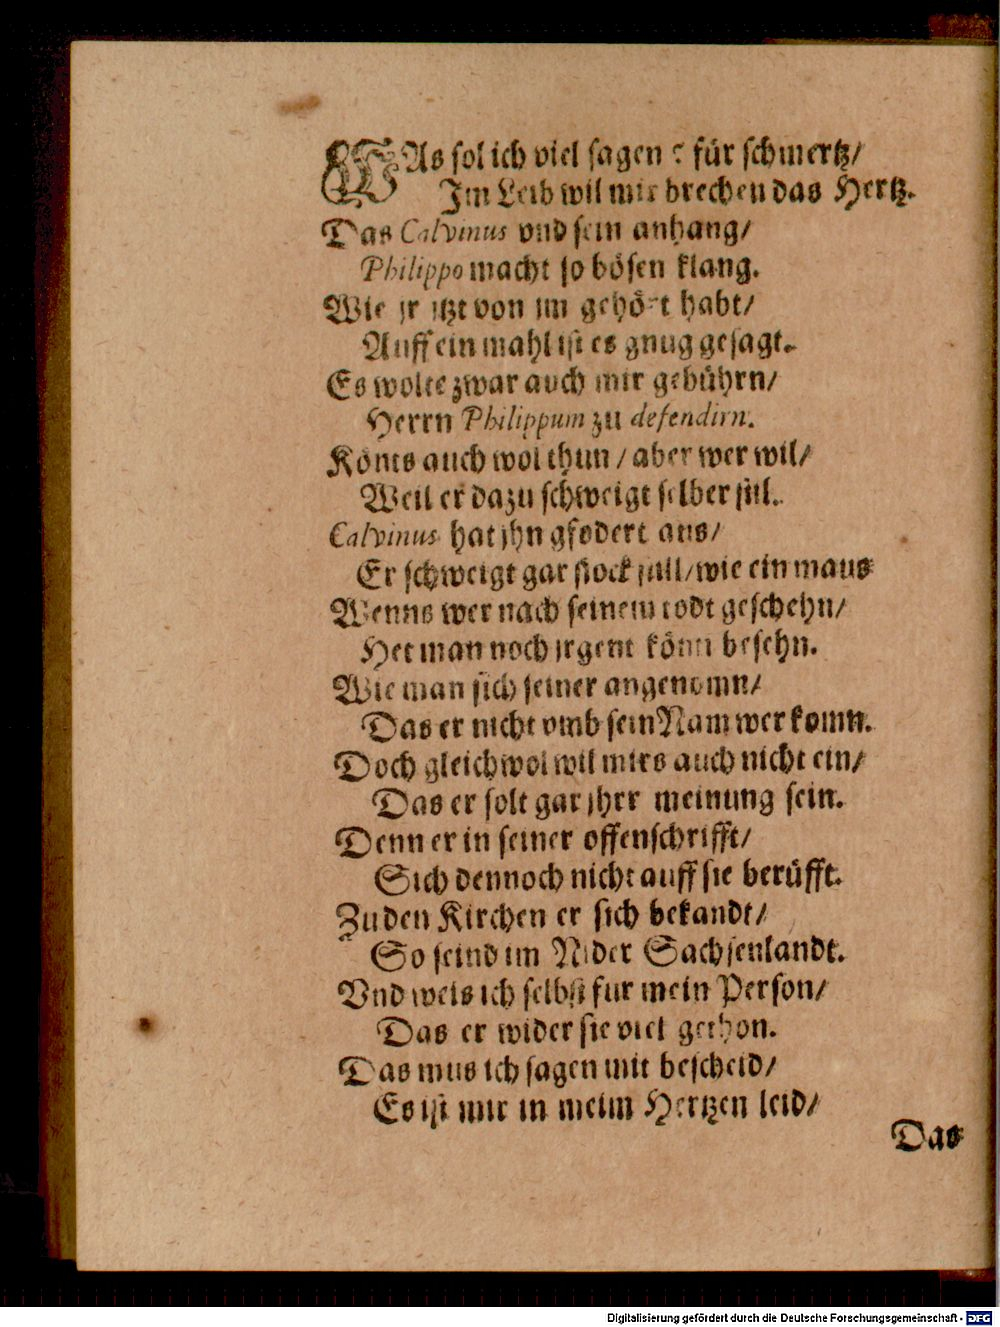 WAs sol ich viel sagen ? für schmertz/
Im Leib wil mir brechen das Hertz.
Das Calvinus vnd sein anhang/
Philippo macht so bösen klang.
Wie jr jtzt von im gehört habt/
Auff ein mahl ist es gnug gesagt.
Es wolte zwar auch mir gebührn/
Herrn Philippum zu defendirn.
Könts auch wol thun / aber wer wil/
Weil er dazu schweigt selber stil.
Calvinus hat jhn gfodert aus/
Er schweigt gar stock still/wie ein maus
Wenns wer nach seinem todt geschehn/
Het man noch jrgent könn besehn.
Wie man sich seiner angenomn/
Das er nicht vmb sein Nam wer komn.
Doch gleichwol wil mirs auch nicht ein/
Das er solt gar jhrr meinung sein.
Denn er in seiner offenschrifft/
Sich dennoch nicht auff sie berüfft.
Zu den Kirchen er sich bekandt/
So seind im Nider Sachsenlandt.
Vnd weis ich selbst fur mein Person/
Das er wider sie viel gethon.
Das mus ich sagen mit bescheid/
Es ist mir in meim Hertzen leid/
Das
Digitalisierung gefördert durch die Deutsche Forschungsgemeinschaft - DFG